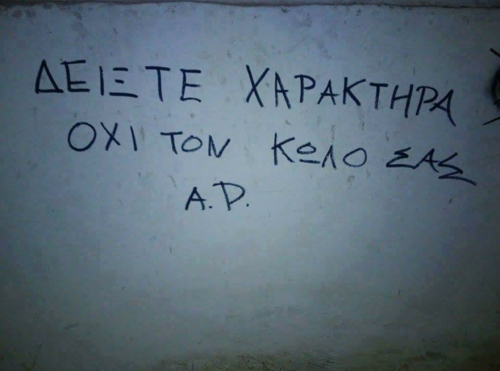 ΔΕΙΞΤΕ ΧΑΡΑΚΤΗΡΑ
ΟΧΙ ΤΟΝ ΚΩΛΟ ΣΑΣ
A.D.